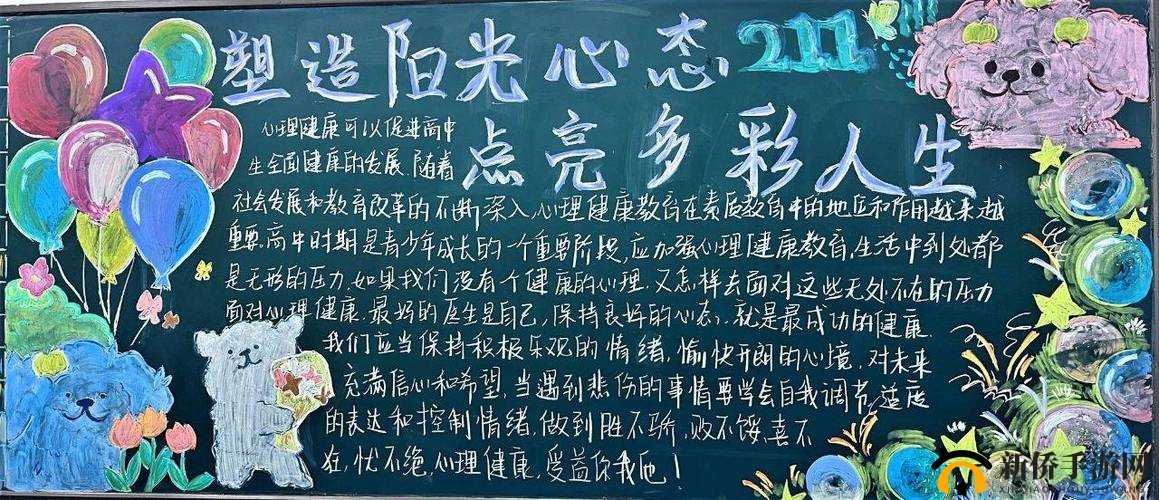 塑造阳光心态 211
点亮多彩人生
心理健康可以促进高中
生全面健康的发展.随着
社会发展和教育改革的不断深入,心理健康教育在素质教育中的地位和作用越来越
重要.高中时期是青少年成长的一个重要阶段,应加强心理健康教育.生活中到处都
是无形的压力.如果我们没有个健康的心理.又怎样去面对这些无处不在的压力
面对心理健康.最好的医生是自己,保持良好的心态.就是最成功的健康.
我们应当保持积极乐观的情绪,愉快开朗的心境,对未来
充满信心和希望.当遇到悲伤的事情要学会自我调节,适度
的表达和控制情绪.做到胜不骄,败不馁,喜不
狂,忧不绝.心理健康,受益你我他!
新侨手游网